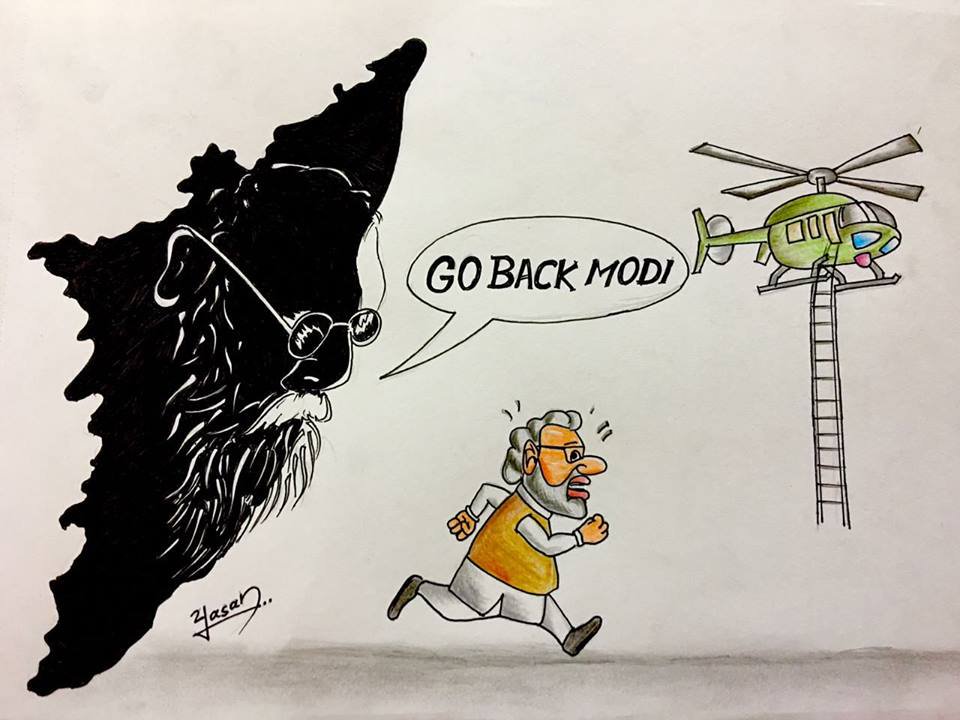 GO BACK MODI
Yasar..